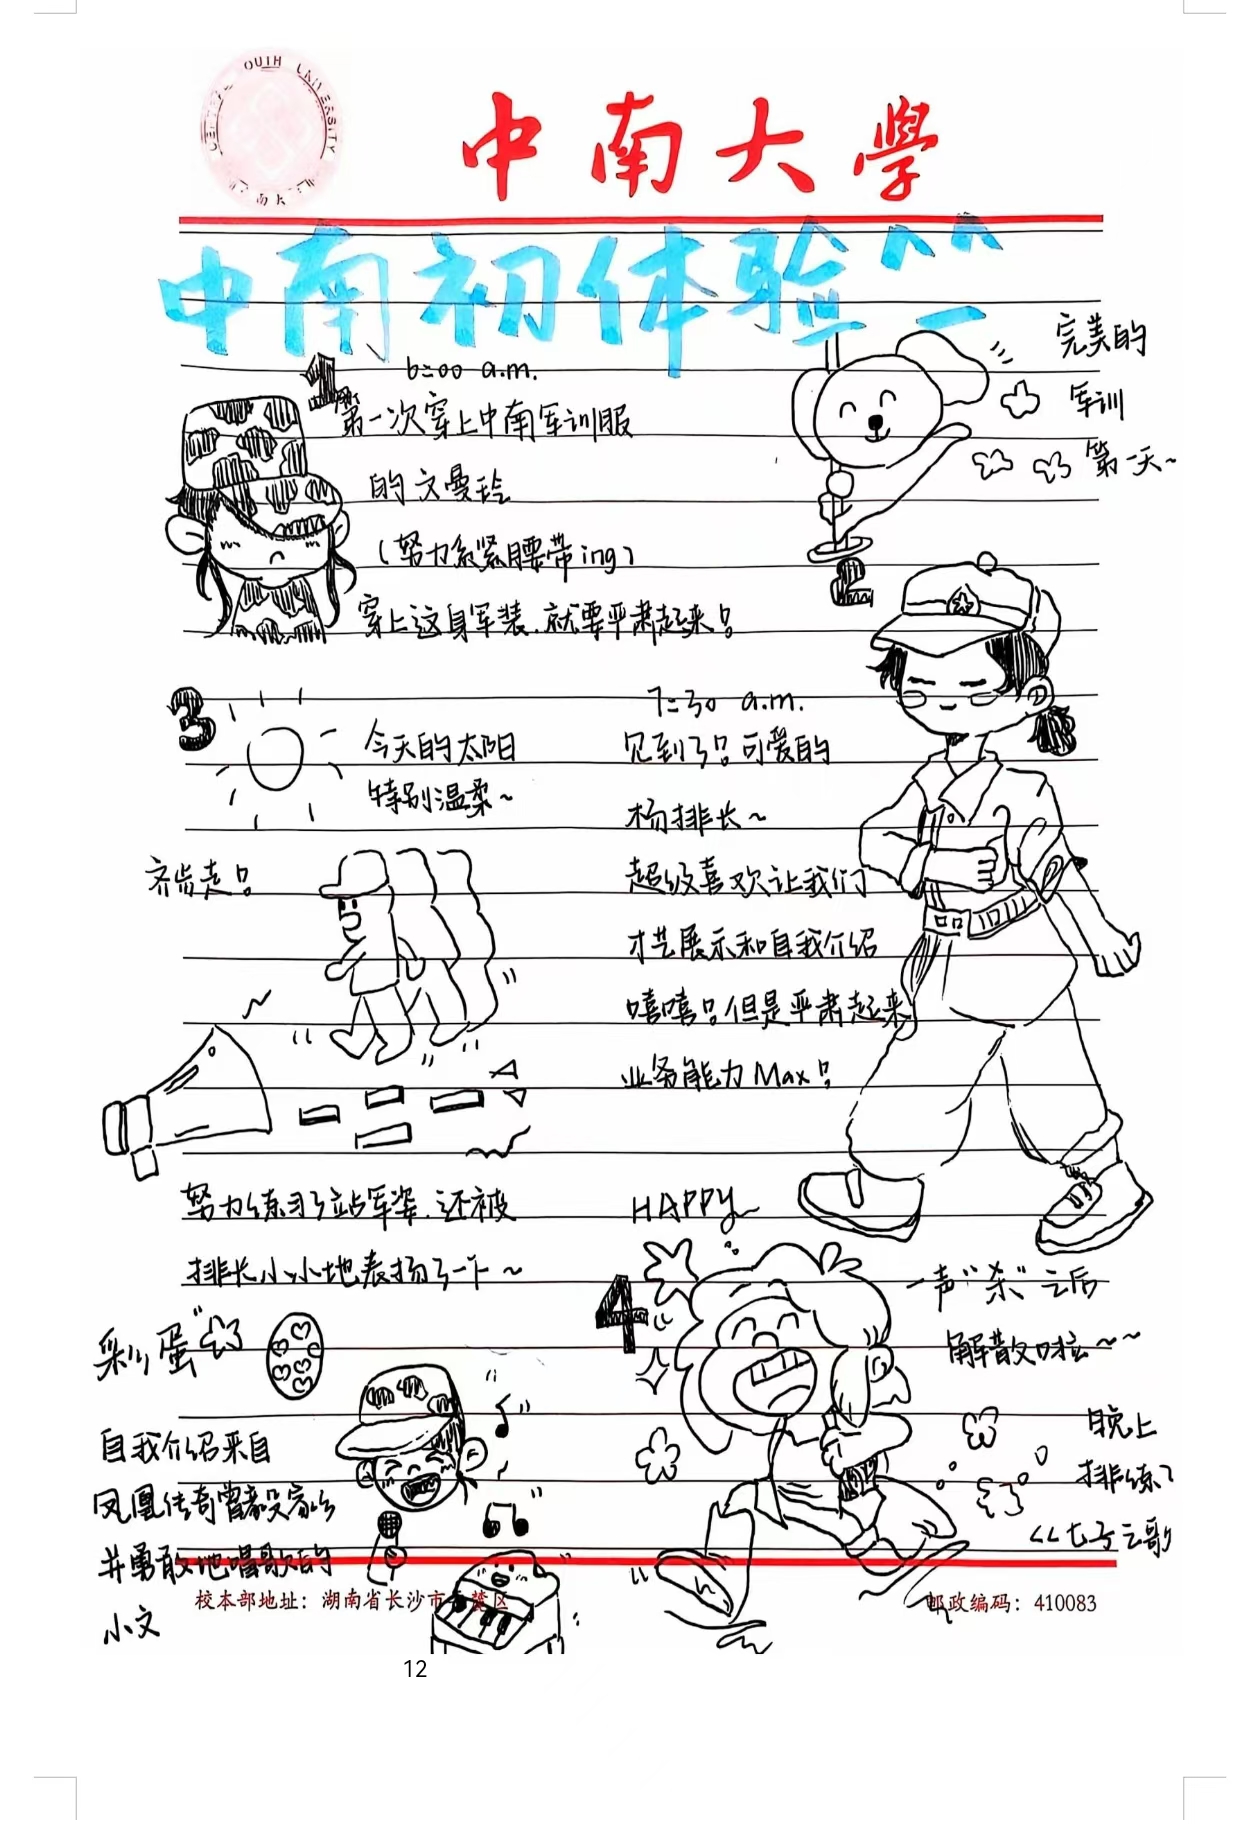 中南大學
中南初体验^_^
1
6:00 a.m.
第一次穿上中南军训服
的文曼玲
(努力系紧腰带ing)
穿上这身军装,就要严肃起来!
完美的
军训
第一天~
2
7:30 a.m.
见到了!可爱的
杨排长~
超级喜欢让我们
才艺展示和自我介绍
嘻嘻!但是严肃起来
业务能力Max!
3
今天的太阳
特别温柔~
齐步走!
努力练习了站军姿,还被
排长小小地表扬了一下~
4
HAPPY~
一声“杀”之后
解散啦~~
晚上
排练了
《七子之歌
彩蛋
自我介绍来自
凤凰传奇曾毅没家的
并勇敢地唱歌的
小文
校本部地址：湖南省长沙市岳麓区
邮政编码：410083
12